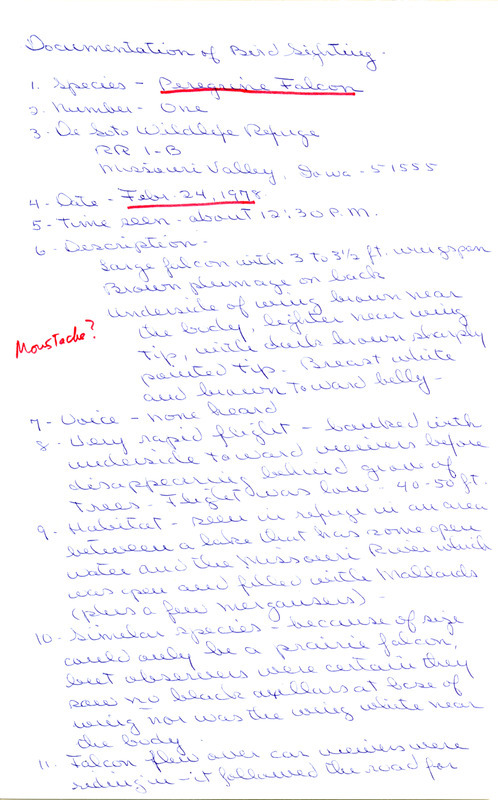 Documentation of Bird Sighting.
1. Species - Peregrine Falcon
2. Number - One
3. De Soto Wildlife Refuge
RR 1-B
Missouri Valley, Iowa - 51555
4 - Date - Febr. 24, 1978
5 - Time seen - about 12:30 P.M.
6 - Description -
Large falcon with 3 to 3½ ft. wingspan
Brown plumage on back
Underside of wing brown near
the body, lighter near wing
Moustache?
tip, with dark brown sharply
pointed tip. Breast white
and brown toward belly -
7 - Voice - none heard
8 - Very rapid flight - banked with
underside toward viewers before
disappearing behind grove of
trees - Flight was low - 40-50 ft.
9 - Habitat - seen in refuge in an area
between a lake that has some open
water and the Missouri River which
was open and filled with Mallards
(plus a few mergansers) -
10 - Similar species - because of size
could only be a prairie falcon,
but observers were certain they
saw no black axillars at base of
wing nor was the wing white near
the body.
11. Falcon flew over car viewers were
riding in - it followed the road for